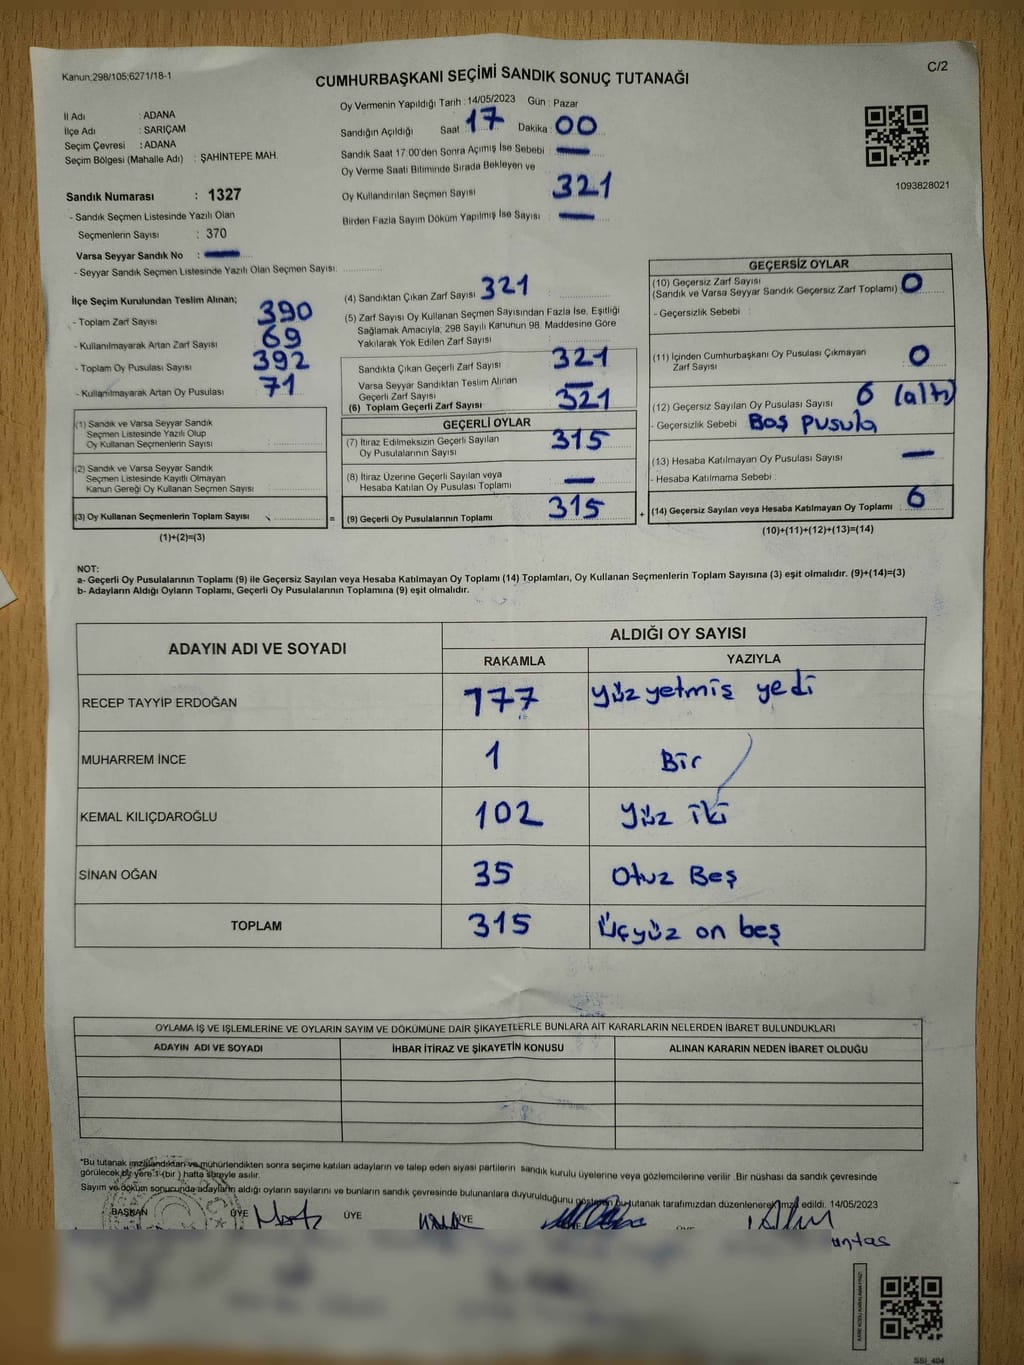 Kanun,298/105;6271/18-1
C/2
CUMHURBAŞKANI SEÇİMİ SANDIK SONUÇ TUTANAĞI
İl Adı : ADANA
İlçe Adı : SARIÇAM
Seçim Çevresi : ADANA
Seçim Bölgesi (Mahalle Adı) : ŞAHİNTEPE MAH.
Sandık Numarası : 1327
- Sandık Seçmen Listesinde Yazılı Olan
Seçmenlerin Sayısı : 370
Varsa Seyyar Sandık No :
- Seyyar Sandık Seçmen Listesinde Yazılı Olan Seçmen Sayısı:
Oy Vermenin Yapıldığı Tarih : 14/05/2023 Gün : Pazar
Sandığın Açıldığı Saat 17 Dakika : 00
Sandık Saat 17:00'den Sonra Açımış İse Sebebi :
Oy Verme Saati Bitiminde Sırada Bekleyen ve
Oy Kullandırılan Seçmen Sayısı 321
Birden Fazla Sayım Döküm Yapılmış İse Sayısı :
1093828021
İlçe Seçim Kurulundan Teslim Alınan;
- Toplam Zarf Sayısı 390
- Kullanılmayarak Artan Zarf Sayısı 69
- Toplam Oy Pusulası Sayısı 392
- Kullanılmayarak Artan Oy Pusulası 71
(1) Sandık ve Varsa Seyyar Sandık
Seçmen Listesinde Yazılı Olup
Oy Kullanan Seçmenlerin Sayısı :
(2) Sandık ve Varsa Seyyar Sandık
Seçmen Listesinde Kayıtlı Olmayan
Kanun Gereği Oy Kullanan Seçmen Sayısı :
(3) Oy Kullanan Seçmenlerin Toplam Sayısı
(1)+(2)=(3)
(4) Sandıktan Çıkan Zarf Sayısı 321
(5) Zarf Sayısı Oy Kullanan Seçmen Sayısından Fazla İse, Eşitliği
Sağlamak Amacıyla, 298 Sayılı Kanunun 98. Maddesine Göre
Yakılarak Yok Edilen Zarf Sayısı :
Sandıkta Çıkan Geçerli Zarf Sayısı 321
Varsa Seyyar Sandıktan Teslim Alınan
Geçerli Zarf Sayısı
(6) Toplam Geçerli Zarf Sayısı 321
GEÇERLİ OYLAR
(7) İtiraz Edilmeksizin Geçerli Sayılan
Oy Pusulalarının Sayısı 315
(8) İtiraz Üzerine Geçerli Sayılan veya
Hesaba Katılan Oy Pusulası Toplamı
=
(9) Geçerli Oy Pusulalarının Toplamı 315
+
GEÇERSİZ OYLAR
(10) Geçersiz Zarf Sayısı
(Sandık ve Varsa Seyyar Sandık Geçersiz Zarf Toplamı) 0
- Geçersizlik Sebebi :
(11) İçinden Cumhurbaşkanı Oy Pusulası Çıkmayan
Zarf Sayısı 0
(12) Geçersiz Sayılan Oy Pusulası Sayısı 6 (altı)
- Geçersizlik Sebebi Boş pusula
(13) Hesaba Katılmayan Oy Pusulası Sayısı
- Hesaba Katılmama Sebebi :
(14) Geçersiz Sayılan veya Hesaba Katılmayan Oy Toplamı 6
(10)+(11)+(12)+(13)=(14)
NOT:
a- Geçerli Oy Pusulalarının Toplamı (9) ile Geçersiz Sayılan veya Hesaba Katılmayan Oy Toplamı (14) Toplamları, Oy Kullanan Seçmenlerin Toplam Sayısına (3) eşit olmalıdır. (9)+(14)=(3)
b- Adayların Aldığı Oyların Toplamı, Geçerli Oy Pusulalarının Toplamına (9) eşit olmalıdır.
ADAYIN ADI VE SOYADI
ALDIĞI OY SAYISI
RAKAMLA YAZIYLA
RECEP TAYYİP ERDOĞAN 177 Yüz yetmiş yedi
MUHARREM İNCE 1 Bir
KEMAL KILIÇDAROĞLU 102 Yüz iki
SİNAN OĞAN 35 Otuz Beş
TOPLAM 315 Üçyüz on beş
OYLAMA İŞ VE İŞLEMLERİNE VE OYLARIN SAYIM VE DÖKÜMÜNE DAİR ŞİKAYETLERLE BUNLARA AİT KARARLARIN NELERDEN İBARET BULUNDUKLARI
ADAYIN ADI VE SOYADI İHBAR İTİRAZ VE ŞİKAYETİN KONUSU ALINAN KARARIN NEDEN İBARET OLDUĞU
*Bu tutanak imzalandıktan ve mühürlendikten sonra seçime katılan adayların ve talep eden siyasi partilerin sandık kurulu üyelerine veya gözlemcilerine verilir. Bir nüshası da sandık çevresinde
görülecek bir yere 1 (bir ) hafta süreyle asılır.
Sayım ve döküm sonucunda adayların aldığı oyların sayılarını ve bunların sandık çevresinde bulunanlara duyurulduğunu gösteren bu tutanak tarafımızdan düzenlenerek imza edildi. 14/05/2023
BAŞKAN ÜYE ÜYE ÜYE
KARE KODU KARALAMAYINIZ!
SSI_404